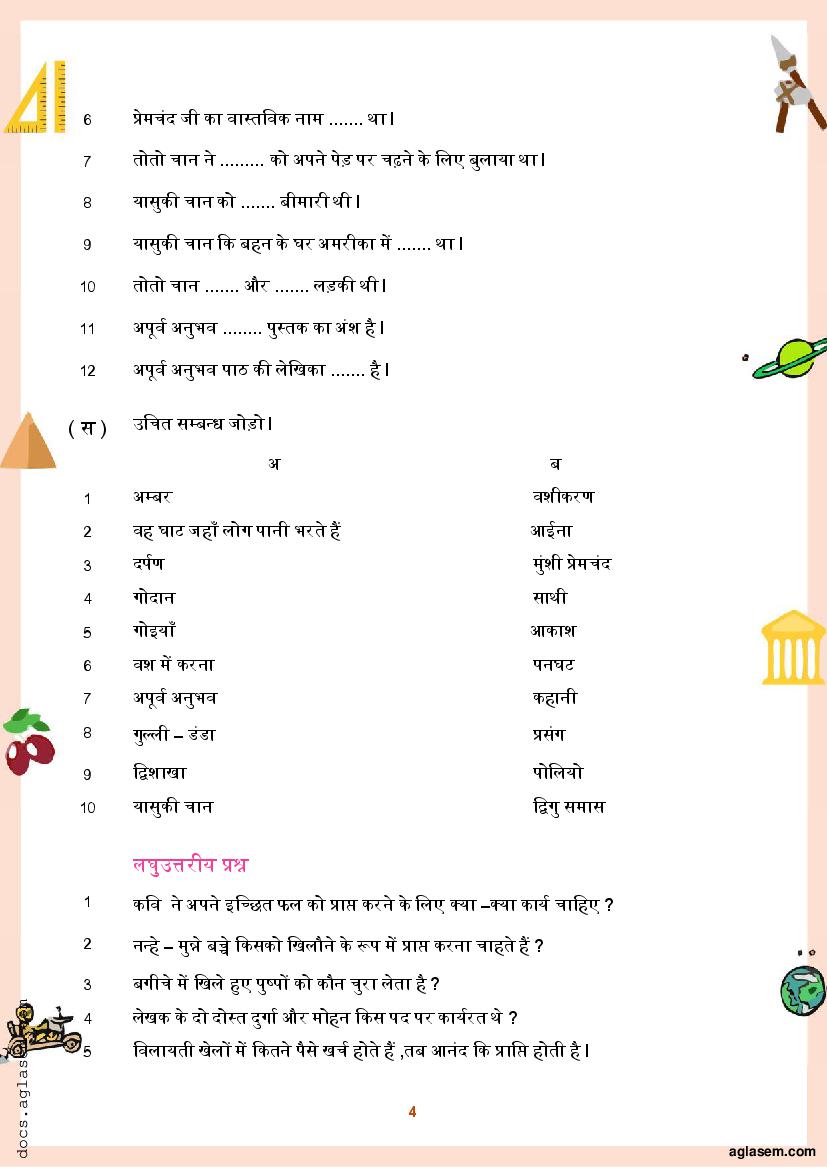 6 प्रेमचंद जी का वास्तविक नाम ....... था।
7 तोतो चान ने ......... को अपने पेड़ पर चढ़ने के लिए बुलाया था।
8 यासुकी चान को ....... बीमारी थी।
9 यासुकी चान कि बहन के घर अमरीका में ....... था।
10 तोतो चान ....... और ....... लड़की थी।
11 अपूर्व अनुभव ........ पुस्तक का अंश है।
12 अपूर्व अनुभव पाठ की लेखिका ....... है।
( स ) उचित सम्बन्ध जोड़ो।
अ ब
1 अम्बर वशीकरण
2 वह घाट जहाँ लोग पानी भरते हैं आईना
3 दर्पण मुंशी प्रेमचंद
4 गोदान साथी
5 गोइयाँ आकाश
6 वश में करना पनघट
7 अपूर्व अनुभव कहानी
8 गुल्ली – डंडा प्रसंग
9 द्विशाखा पोलियो
10 यासुकी चान द्विगु समास
लघुउत्तरीय प्रश्न
1 कवि ने अपने इच्छित फल को प्राप्त करने के लिए क्या –क्या कार्य चाहिए ?
2 नन्हे – मुन्ने बच्चे किसको खिलौने के रूप में प्राप्त करना चाहते हैं ?
3 बगीचे में खिले हुए पुष्पों को कौन चुरा लेता है ?
4 लेखक के दो दोस्त दुर्गा और मोहन किस पद पर कार्यरत थे ?
5 विलायती खेलों में कितने पैसे खर्च होते हैं ,तब आनंद कि प्राप्ति होती है।
4
aglasem.com